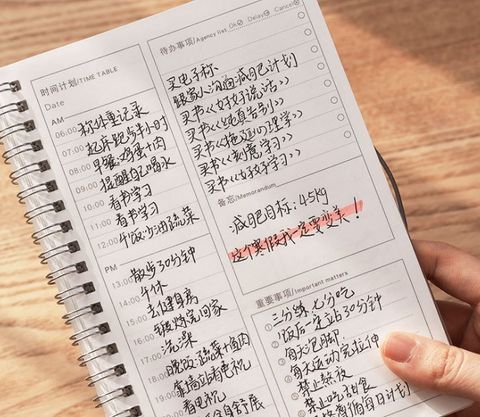 时间计划/TIME TABLE
Date
AM
06:00 称体重记录
07:00 起床跑步半小时
08:00 早餐:鸡蛋+肉
09:00 提醒自己喝水
10:00 看书学习
11:00 看书学习
12:00 午饭:少油蔬菜
PM
13:00 散步30分钟
14:00 午休
15:00 去健身房
16:00 锻炼完回家
17:00 洗澡
晚饭:蔬菜+鱼肉
靠墙站着看电视
看电视
待办事项/Agency list Ok Delay Cancel
买电子称
跟家人沟通减肥计划
买书《好好说话》
买书《纯真告别》
买书《拖延心理学》
买书《刻意学习》
买书《好好学习》
备忘/Memorandum
减肥目标:45kg
这个寒假我一定要变美!
重要事项/Important matters
① 三分练七分吃
② 饭后站立30分钟
③ 每天泡脚
④ 每天运动完拉伸
禁止熬夜
禁止吃甜食